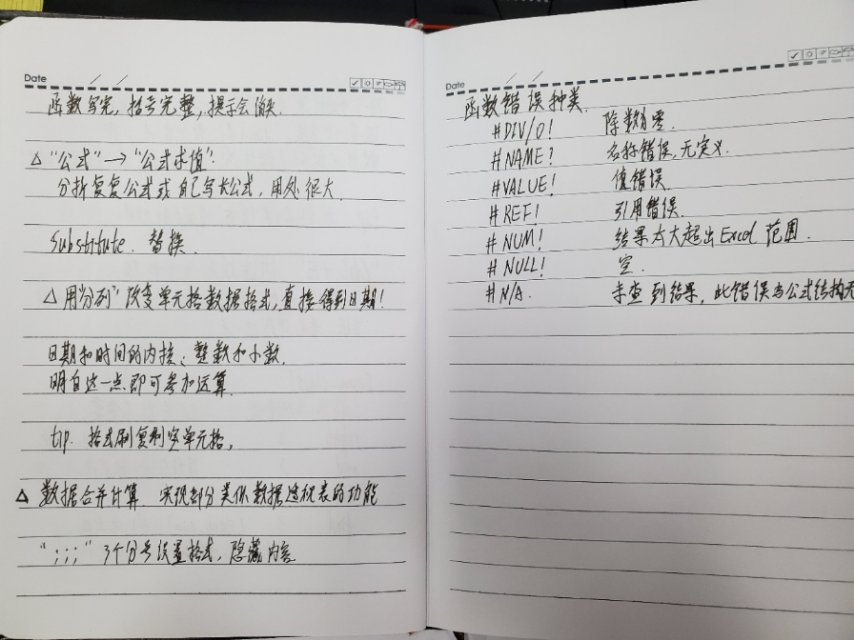 Date
函数写完，括号完整，提示会消失.
△ "公式"→"公式求值"：
分析复复公式或自己写长公式，用处很大.
Substitute. 替换.
△ 用"分列"改变单元格数据格式，直接得到日期！
日期和时间的内接：整数和小数.
明白这一点即可参加运算.
tip. 格式刷复制空单元格，
△ 数据合并计算 实现部分类似数据透视表的功能
";;;" 3个分号设置格式，隐藏内容
Date
函数错误种类.
#DIV/0! 除数有零.
#NAME? 名称错误，无定义.
#VALUE! 值错误.
#REF! 引用错误.
#NUM! 结果太大超出Excel范围.
#NULL! 空.
#N/A. 未查到结果，此错误与公式结构无